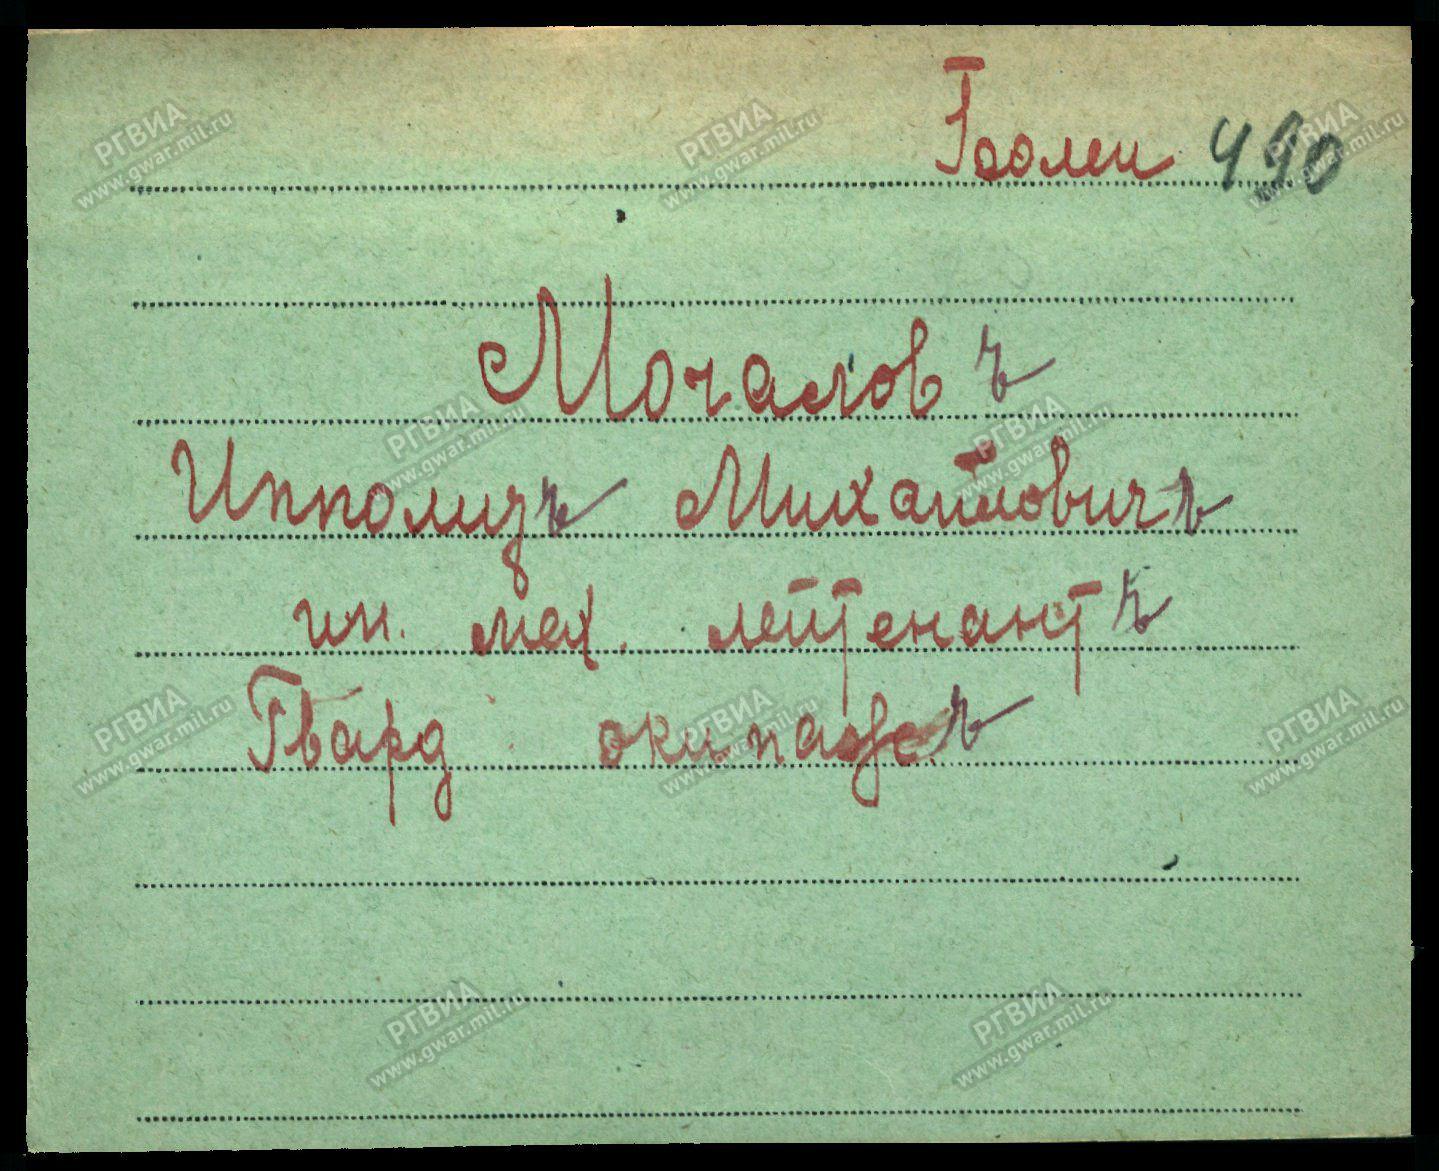 490
Мочаловъ
Ипполитъ Михайловичъ
ин. мех. лейтенантъ
Гвард окипажъ
РГВИА
www.gwar.mil.ru